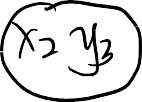 x₂ y₃